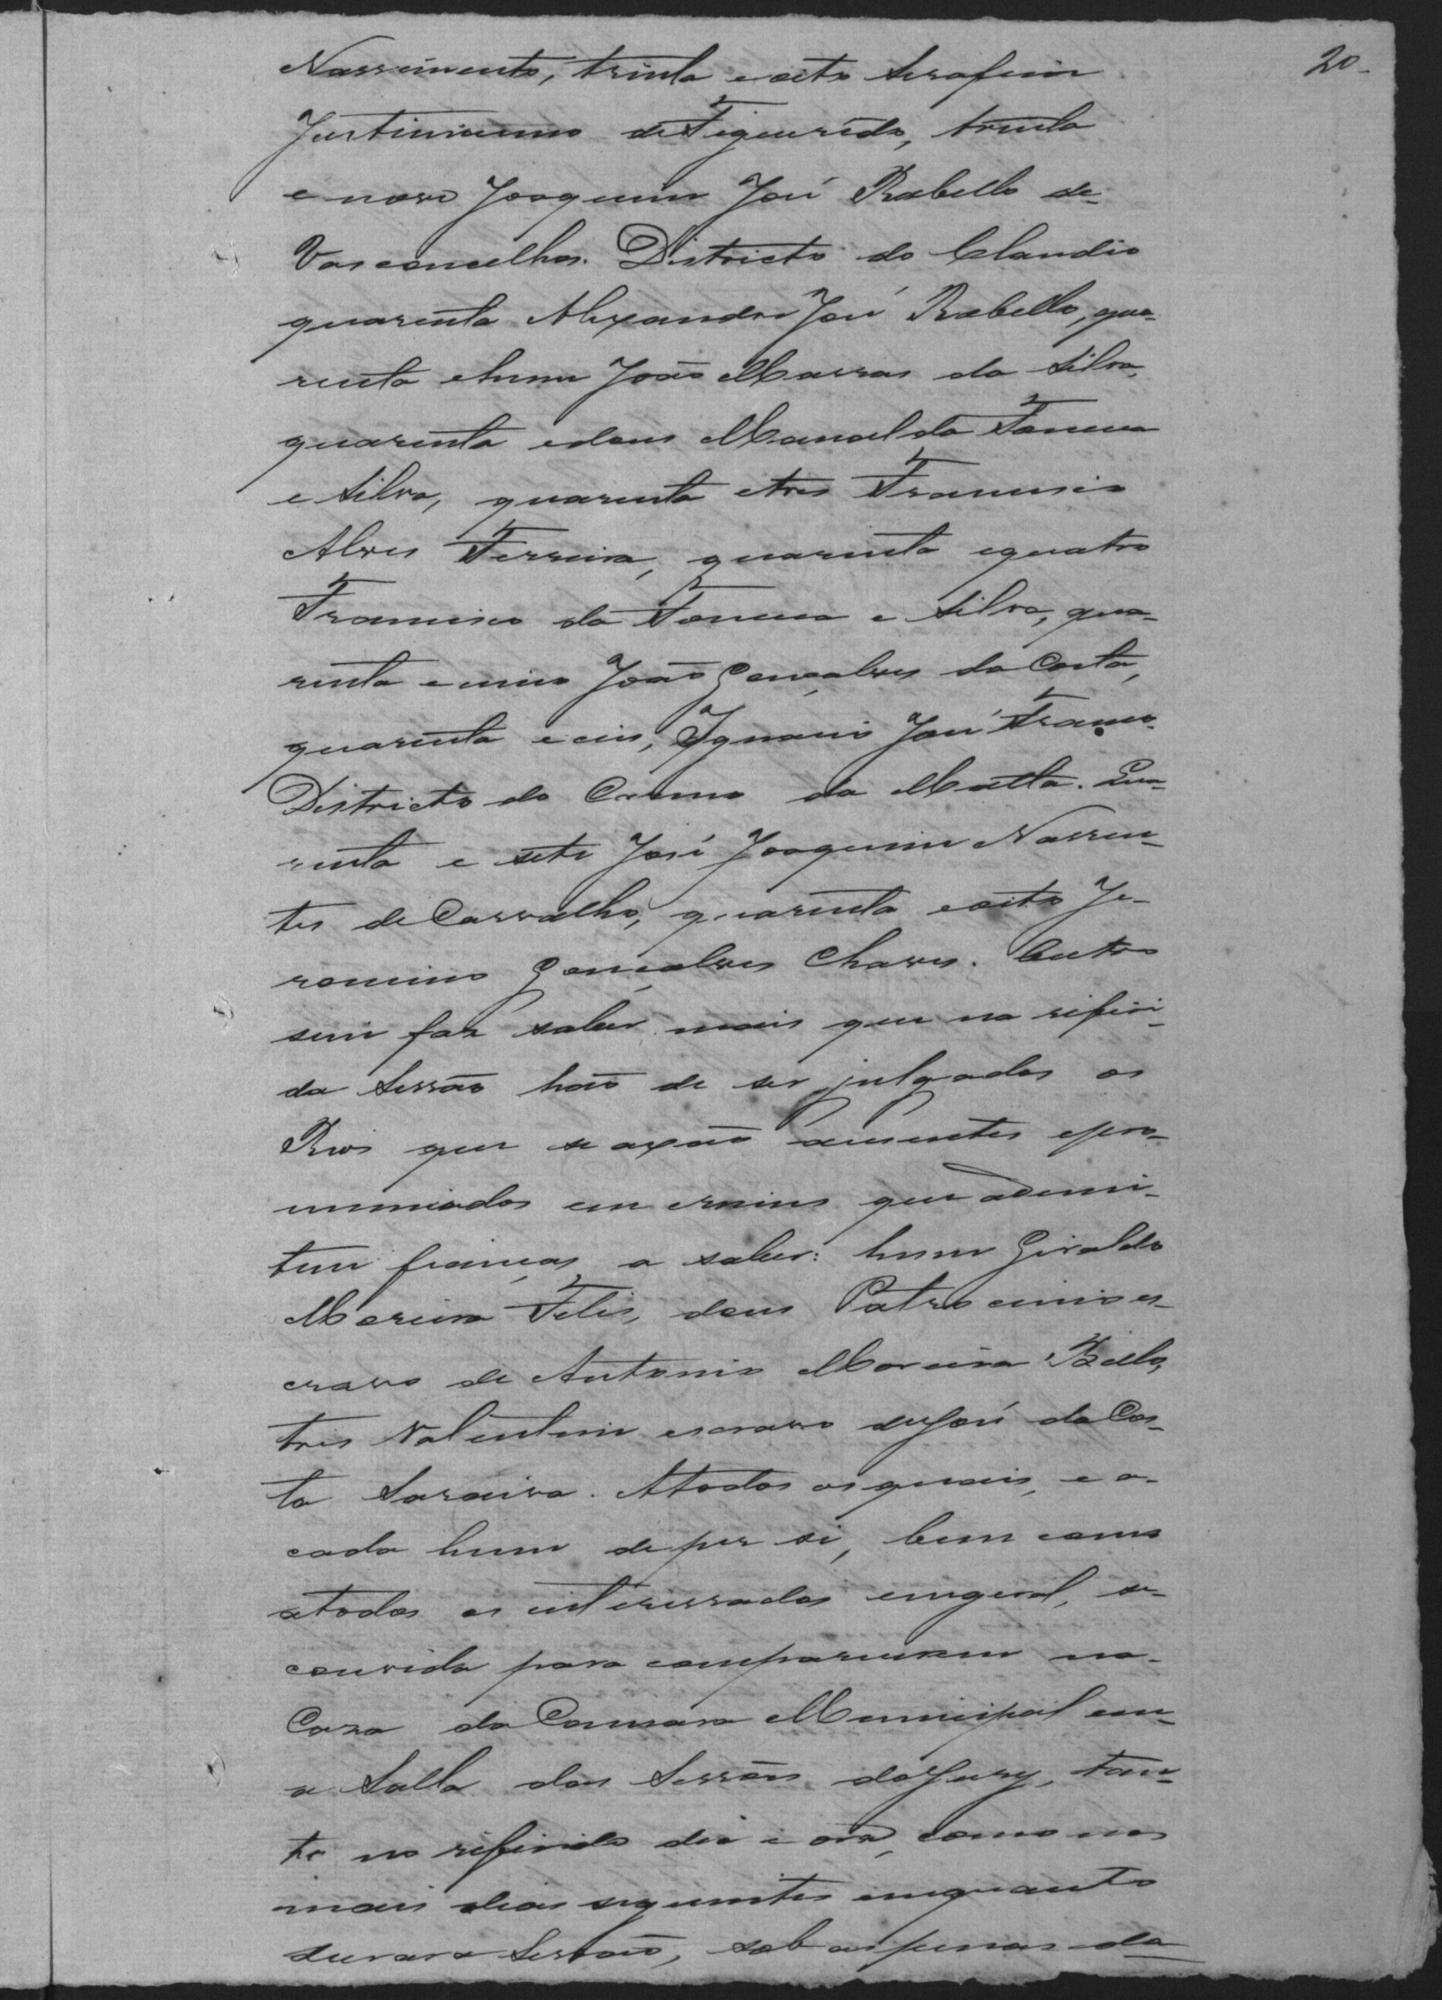 20
Nascimento, trinta e oito Serafim
Justiniano de Figueredo, trinta
e nove Joaquim José Rabello de
Vasconcelhos. Districto do Claudio
quarenta Alexandre José Rabello, qua-
renta e hum João Marras da Silva,
quarenta e dous Manoel da Fonceca
e Silva, quarenta e tres Francisco
Alves Ferreira, quarenta e quatro
Francisco da Fonceca e Silva, qua-
renta e cinco João Gonçalves da Costa,
quarenta e ceis, Ignacio José Franco.
Districto do Carmo da Matta. Qua-
renta e sete José Joaquim Nascen-
tes de Carvalho, quarenta e oito Je-
ronimo Gonçalves Chaves. Outro
sim faz saber mais que na referi-
da Sessão hão de ser julgados os
Reos que se axão auzentes e pro-
nunciados em crimes queademi-
tem fianças a saber: hum Giraldo
Moreira Felis, dous Patrocinio es-
cravo de Antonio Moreira Bello,
tres Valentim escravo de José da Cos-
ta Saraiva. A todos os quais, e a-
cada hum de per si, bem como
a todos os interessados em geral, se-
convida para comparecerem na-
Caza da Camara Municipal em-
a Salla das Sessões do Jury, tan-
to no referido dia e ora, como nos
mais dias seguintes emquanto
durar a Sessão, sob as penas da